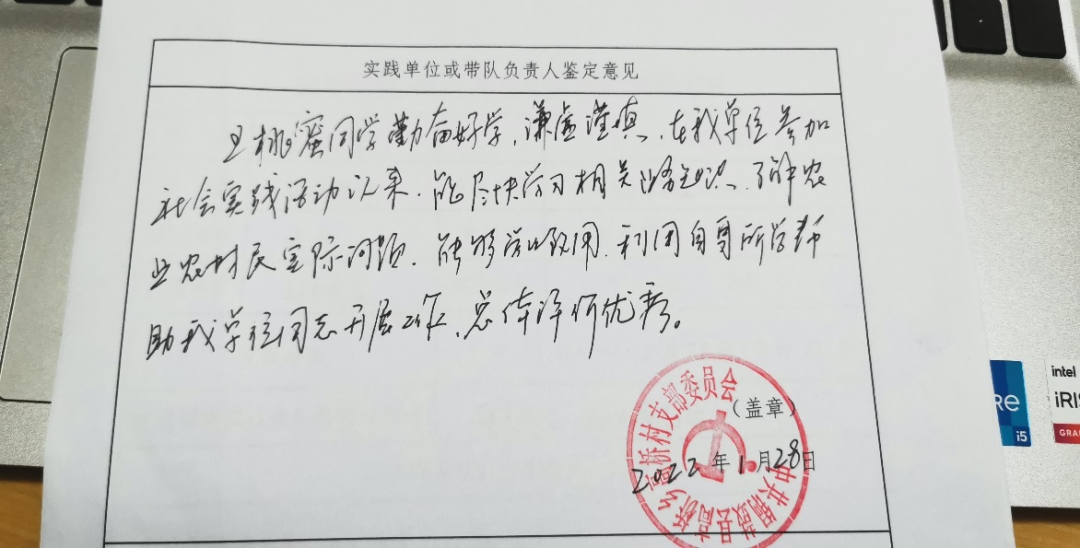 实践单位或带队负责人鉴定意见
王桃蜜同学勤奋好学,谦虚谨慎,在我单位参加
社会实践活动以来,能尽快学习相关 知识,了解农
业农村民实际问题,能够学以致用,利用自身所学帮
助我单位同志开展工作,总体评价优秀。
(盖章)
2022年1月28日
中共铜鼓县高桥乡高桥村支部委员会
intel
iRIS
GRA
RE
i5